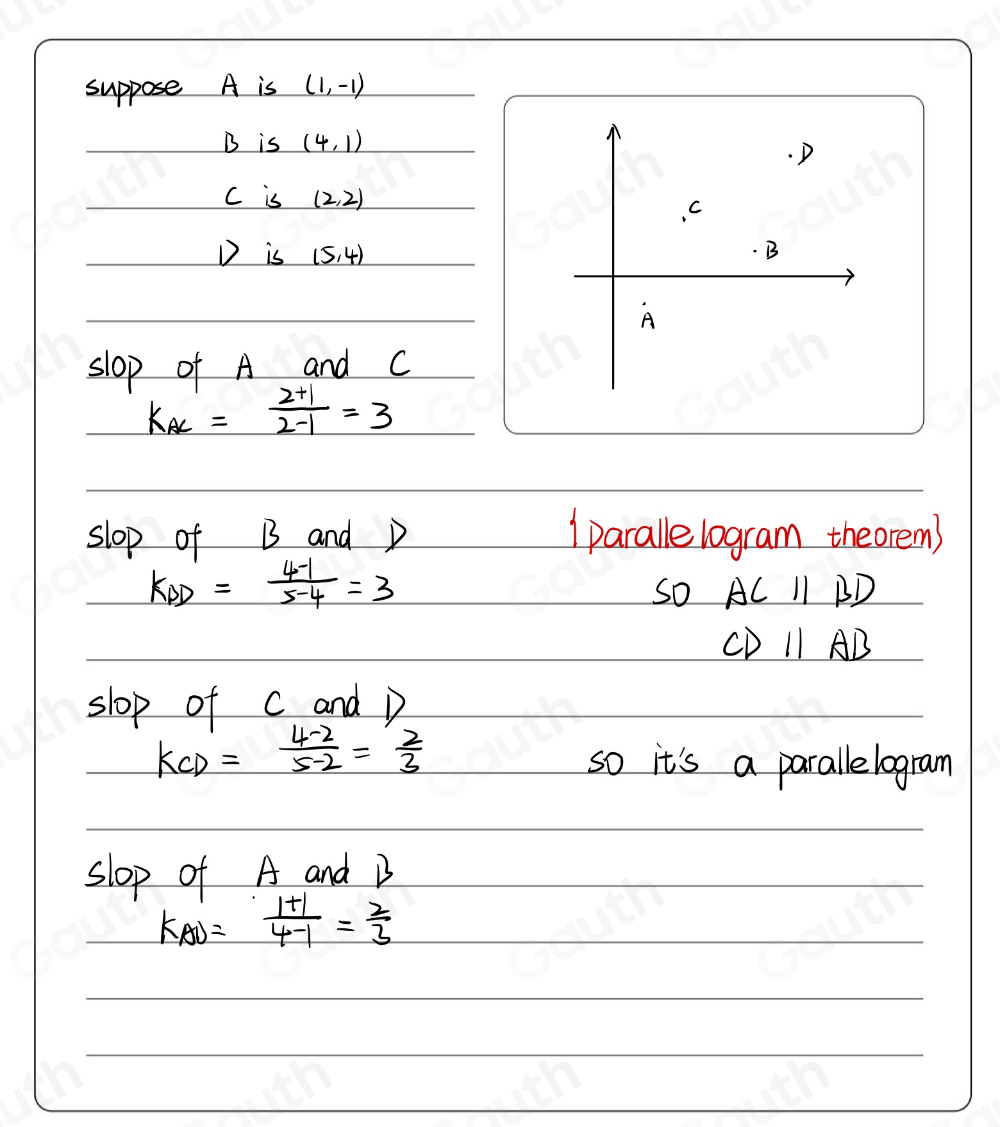 suppose A is (1,-1)
B is (4,1)
C is (2,2)
D is (5,4)
.D
.C
.B
A
slop of A and C
K_AC = \frac{2+1}{2-1} = 3
slop of B and D
K_BD = \frac{4-1}{5-4} = 3
{parallelogram theorem}
so AC || BD
CD || AB
slop of C and D
K_CD = \frac{4-2}{5-2} = \frac{2}{3}
so it's a parallelogram
slop of A and B
K_AB = \frac{1+1}{4-1} = \frac{2}{3}
Gauth